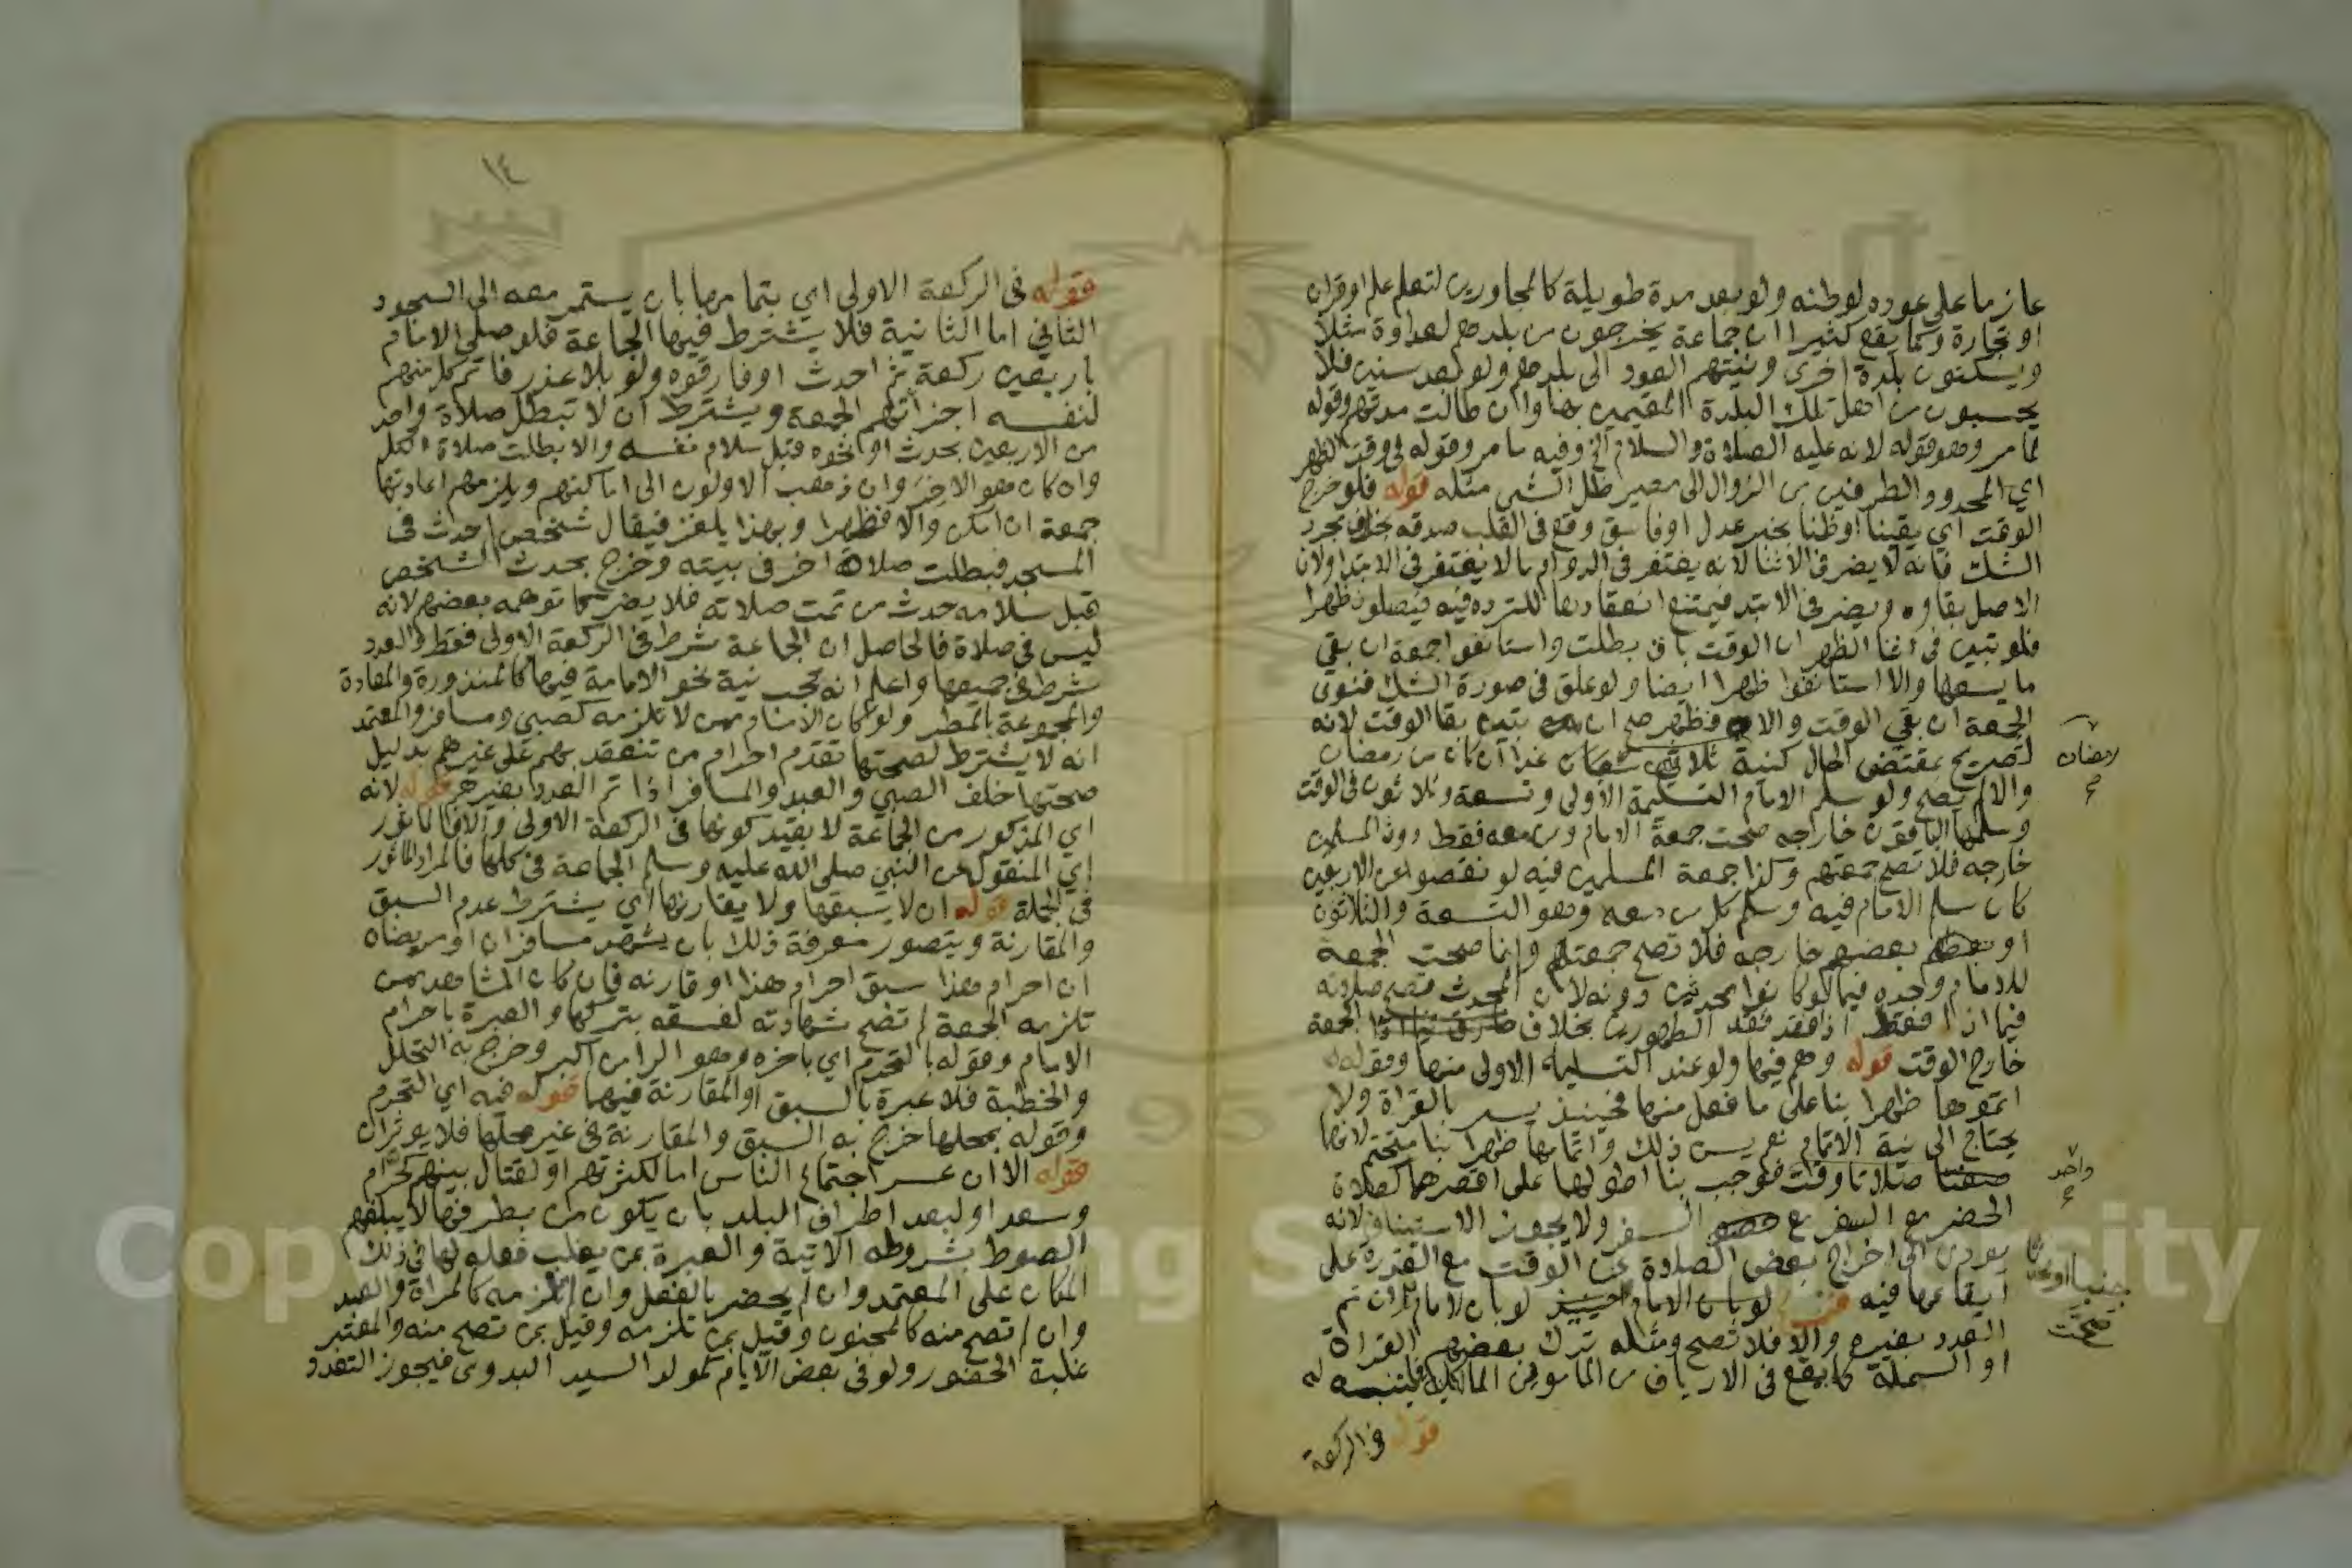 عازما على عوده لوطنه ولو بعد مدة طويلة كالمجاورين لتعلم علم او قران
او تجارة وكما يقع كثيرا ان جماعة يخرجون من بلدهم لعداوة مثلا
ويسكنون بلدة اخرى ونيتهم العود الى بلدهم ولو بعد سنين فلا
يحسبون من اهل تلك البلدة المقيمين بها وان طالت مدتهم وقوله
لما مر وهو قوله لانه عليه الصلاة والسلام الخ وفيه ما مر وقوله في وقت الظهر
اي المحدود الطرفين من الزوال الى مصير ظل الشي مثله قوله فلو خرج
الوقت اي يقينا او ظنا بخبر عدل او فاسق وقع في القلب صدقه بخلاف مجرد
الشك فانه لا يضر في الاثنا لانه يغتفر في الدوام ما لا يغتفر في الابتدا ولان
الاصل بقاوه ويضر في الابتدا فيمتنع انعقادها للتردد فيه فيصلون ظهرا
فلو تبين في اثنا الظهر ان الوقت باق بطلت واستانفوا جمعة ان بقي
ما يسعها والا استانفوا ظهرا ايضا ولو علق في صورة الشك فنوى
الجمعة ان بقي الوقت والا فظهر صح ان تبين بقا الوقت لانه
تصريح بمقتضى الحال كنية ثلاثين شعبان غدا ان كان من رمضان
رمضان
والا لم يصح ولو سلم الامام التسليمة الاولى وتسعة وثلاثون في الوقت
وسلمها الباقون خارجه صحت جمعة الامام ومن معه فقط دون المسلمين
خارجه فلا تصح جمعتهم وكذا جمعة المسلمين فيه لو نقصوا عن الاربعين
كان سلم الامام فيه وسلم كل من معه وهو التسعة والثلاثون
او بعضهم خارجه فلا تصح جمعتهم وانما صحت الجمعة
للامام وحده فيما لو كانوا محدثين دونه لان المحدث تصح صلاته
فيما اذا فقد الطهورين بخلاف الجمعة
خارج الوقت قوله وهم فيها ولو عند التسليمة الاولى منها وقوله
اتموها ظهرا بنا على ما فعل منها فحينئذ يسر بالقراة ولا
يحتاج الى نية الاتمام نعم يسن ذلك واتمامها ظهرا بنا متحتم لانها
صلاتا وقت فوجب بنا اطولها على اقصرهما كصلاة
واحد
الحضر مع السفر ولا يجوز الاستيناف لانه
يودي الى اخراج بعض الصلاة عن الوقت مع القدرة على
ايقاعها فيه لو بان الامام ان تم
جنبا او محدثا
صحت
العدد بغيره والا فلا تصح ومثله ترك بعضهم القراة
او البسملة كما يقع في الارياف من المامومين المالكية فليتنبه له
قوله في الركعة
١٤
قوله في الركعة الاولى اي بتمامها بان يستمر معه الى السجود
الثاني اما الثانية فلا يشترط فيها الجماعة فلو صلى الامام
باربعين ركعة ثم احدث او فارقوه ولو بلا عذر فاتم كل منهم
لنفسه اجزاتهم الجمعة ويشترط ان لا تبطل صلاة واحد
من الاربعين بحدث او نحوه قبل سلام نفسه والا بطلت صلاة الكل
وان كان هو الاخير وان ذهب الاولون الى اماكنهم ويلزمهم اعادتها
جمعة ان امكن والا فظهرا وبهذا يلغز فيقال شخص احدث في
المسجد فبطلت صلاة اخر في بيته وخرج بحدث الشخص
قبل سلامه حدث من تمت صلاته فلا يضر كما توهمه بعضهم لانه
ليس في صلاة فالحاصل ان الجماعة شرط في الركعة الاولى فقط والعدد
شرط في جميعها واعلم انه تجب نية نحو الامامة فيها كالمنذورة والمعادة
والمجموعة بالمطر ولو كان الامام ممن لا تلزمه كصبي ومسافر والمعتمد
انه لا يشترط لصحتها تقدم احرام من تنعقد بهم على غيرهم بدليل
صحتها خلف الصبي والعبد والمسافر اذا تم العدد بغيرهم قوله لانه
اي المذكور من الجماعة لا بقيد كونها في الركعة الاولى والا فالماثور
اي المنقول عن النبي صلى الله عليه وسلم الجماعة في كلها فالمراد الماثور
في الجملة قوله ان لا يسبقها ولا يقارنها اي يشترط عدم السبق
والمقارنة ويتصور معرفة ذلك بان يشهد مسافران او مريضان
ان احرام هذا سبق احرام هذا او قارنه فان كان المشاهد ممن
تلزمه الجمعة لم تصح شهادته لفسقه بتركها والعبرة باحرام
الامام وقوله بالتحرم اي باخره وهو الرا من اكبر وخرج به التحلل
والخطبة فلا عبرة بالسبق او المقارنة فيهما قوله فيه اي التحرم
وقوله بمحلها خرج به السبق والمقارنة في غير محلها فلا يوثران
قوله الا ان عسر اجتماع الناس اما لكثرتهم او لقتال بينهم كحرام
وسعد او لبعد اطراف البلد بان يكون من بطرفها لا يبلغهم
الصوط بشروطه الاتية والعبرة بمن يغلب فعله لها في ذلك
المكان على المعتمد وان لم يحضر بالفعل وان لم تلزمه كالمراة والعبد
وان لم تصح منه كالمجنون وقيل بمن تلزمه وقيل بمن تصح منه والمعتبر
غلبة الحضور ولو في بعض الايام كمولد السيد البدوي فيجوز التعدد